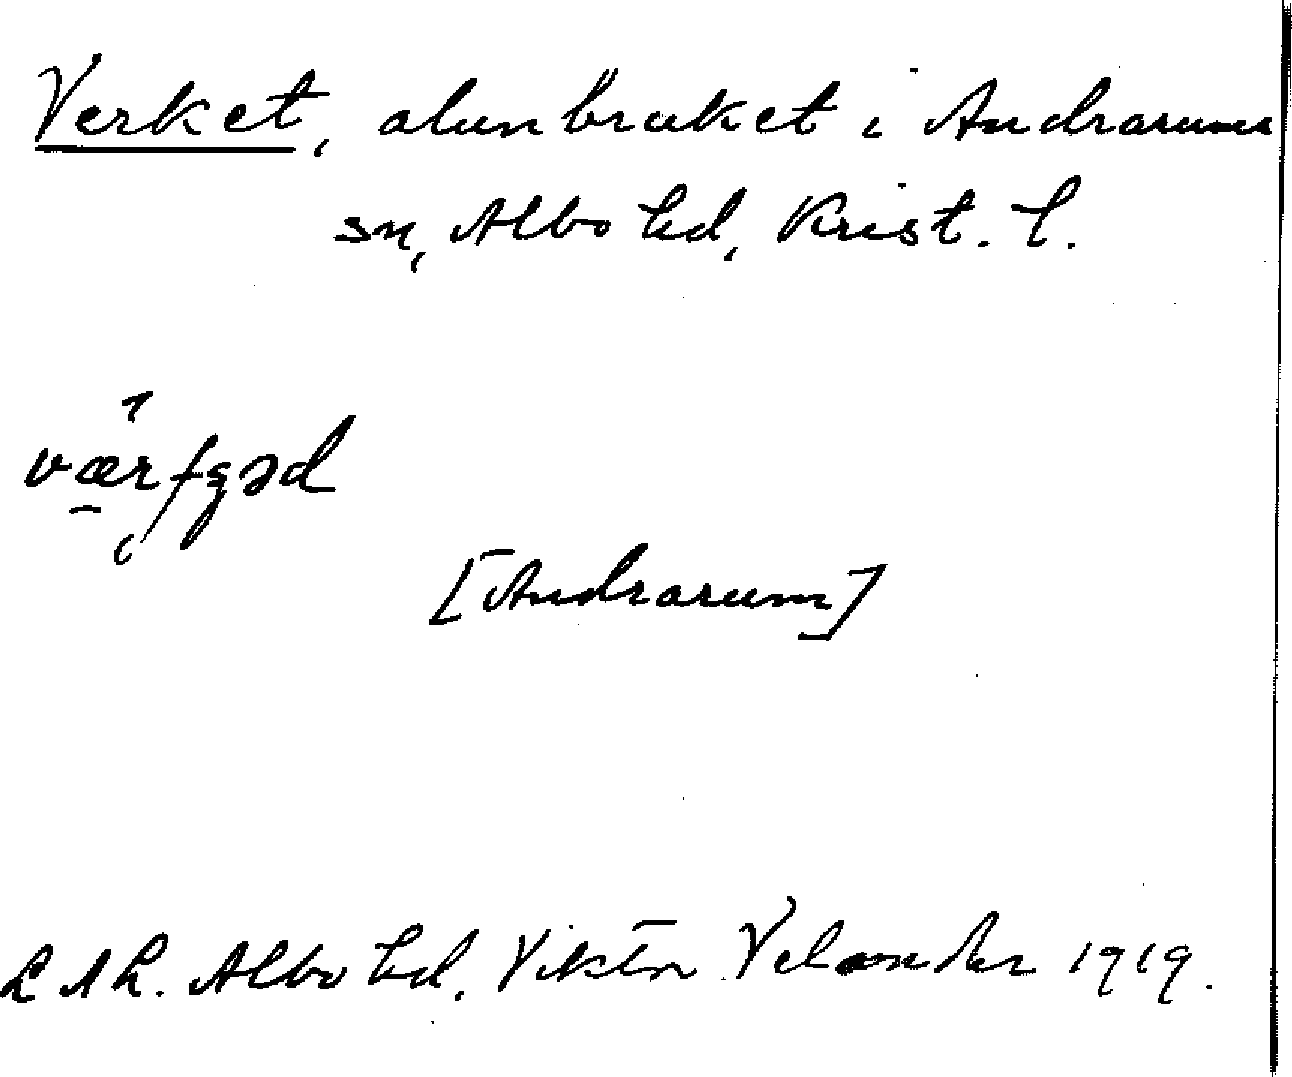 Verket, alunbruket i Andrarums
sn, Albo hd, Krist. l.
[Andrarum]
LAL. Albo hd. Viktor Velander 1919.